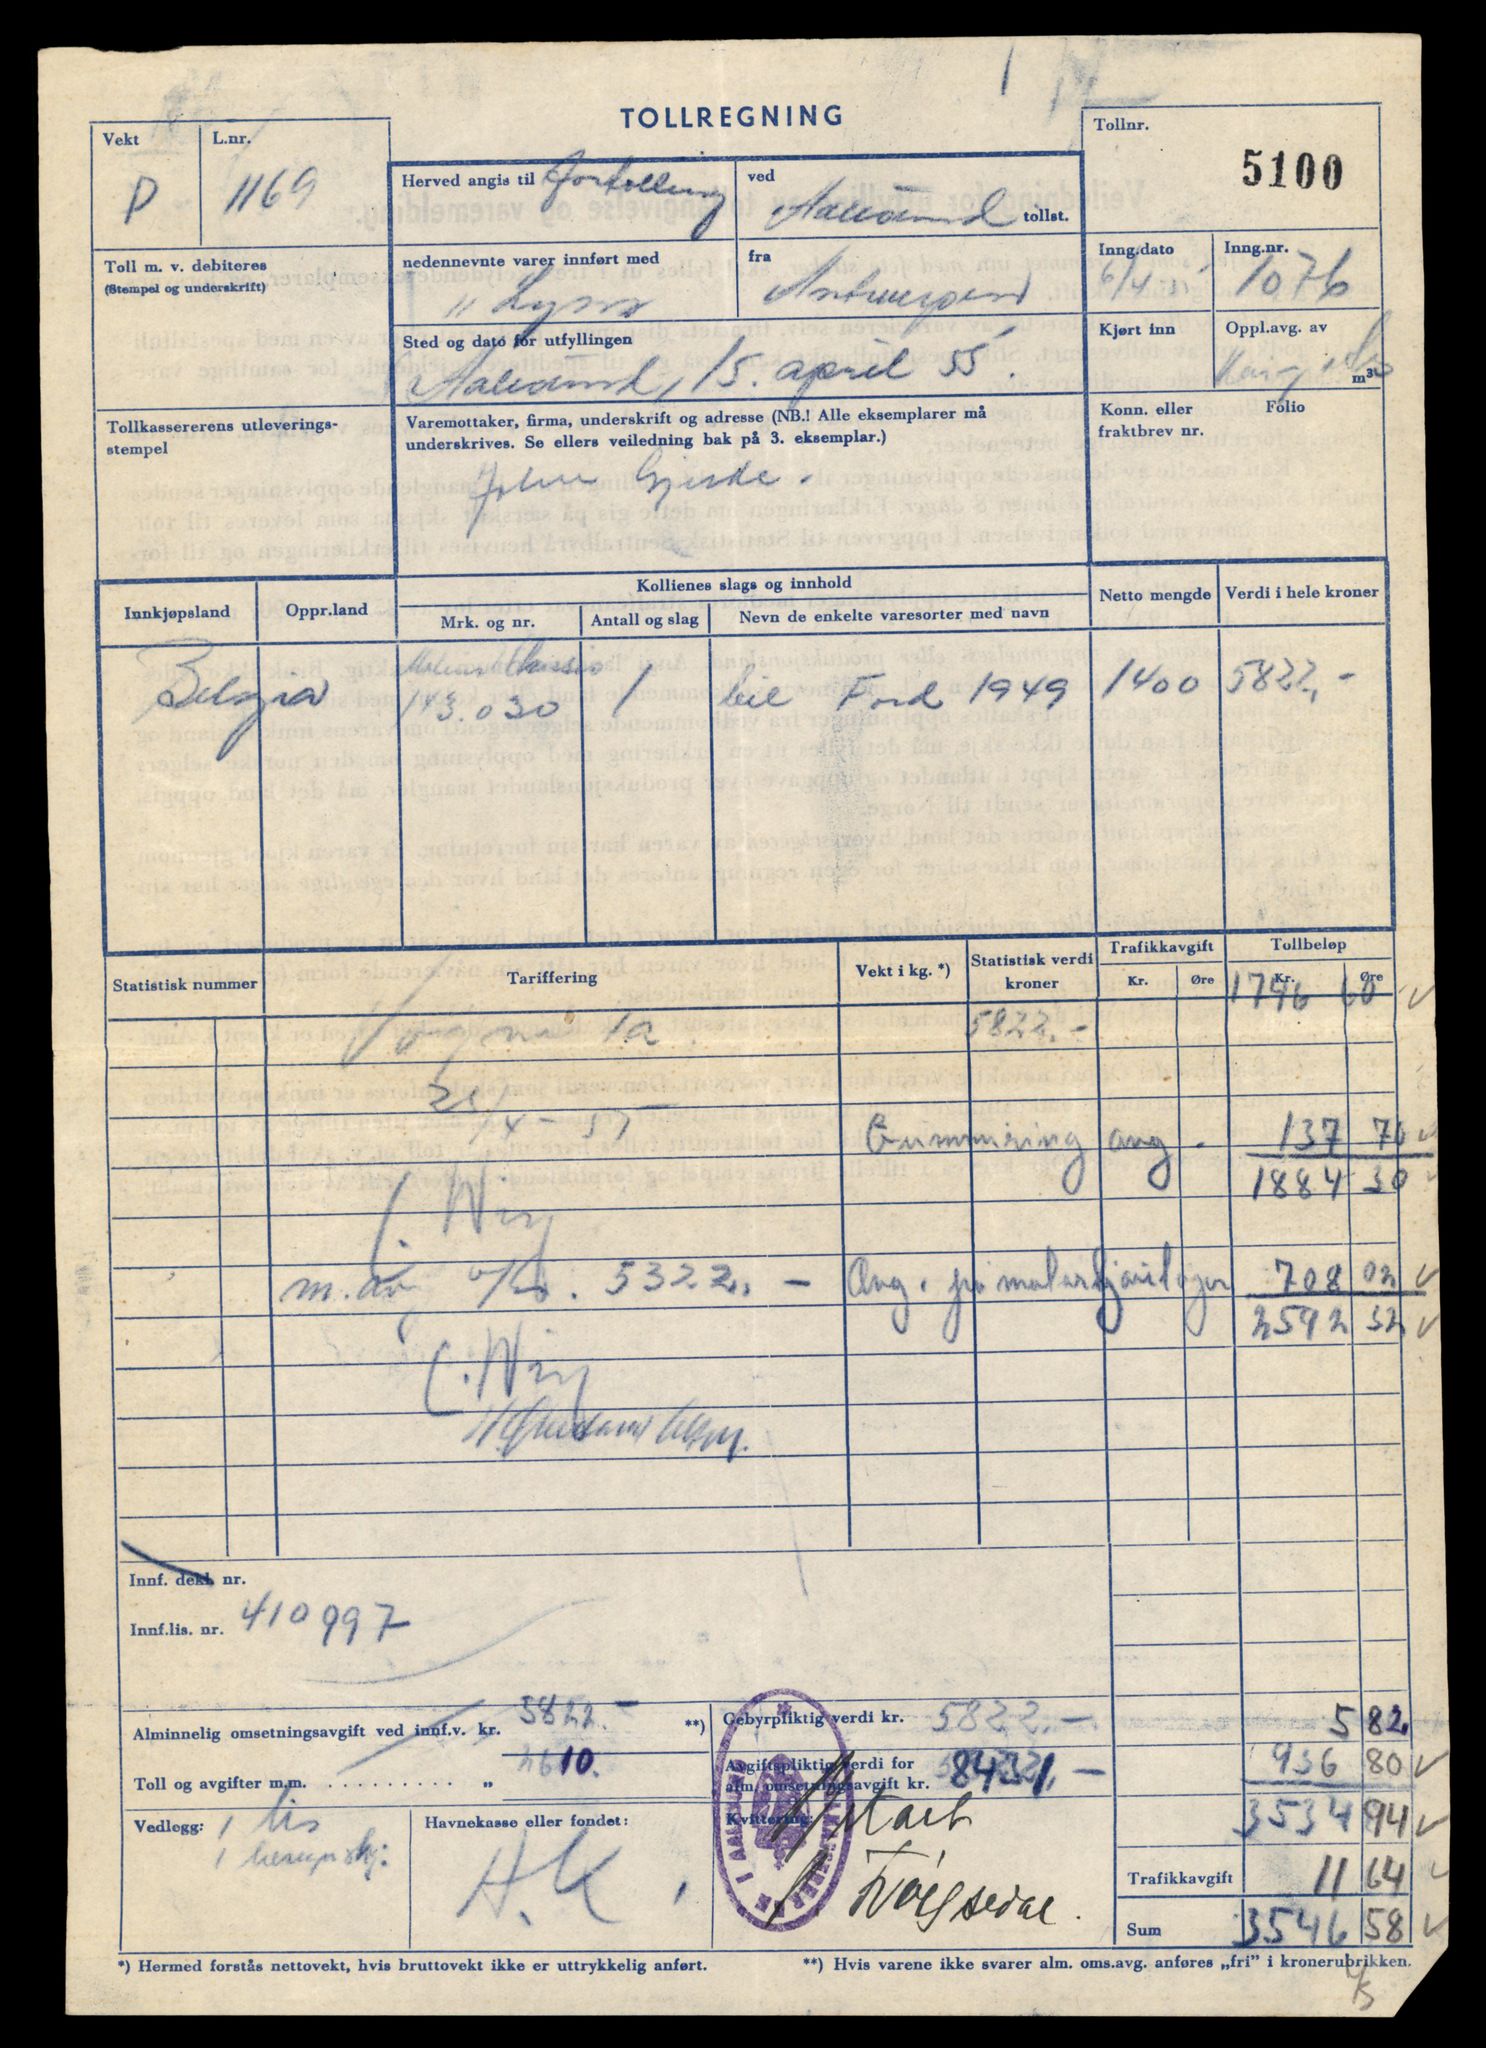 TOLLREGNING
Vekt
P
L.nr.
1169
Herved angis til Fortolling
ved
Aalesund tollst.
Tollnr.
5100
Toll m. v. debiteres
(Stempel og underskrift)
nedennevnte varer innført med
" Lyra
fra
Antwerpen
Inng.dato
6/4 55
Inng.nr.
1076
Sted og dato for utfyllingen
Aalesund, 15. april 55.
Kjørt inn
Oppl.avg. av
m³
Tollkassererens utleverings-
stempel
Varemottaker, firma, underskrift og adresse (NB.! Alle eksemplarer må
underskrives. Se ellers veiledning bak på 3. eksemplar.)
John Gjerde.
Konn. eller
fraktbrev nr.
Folio
Innkjøpsland
Oppr.land
Kollienes slags og innhold
Mrk. og nr.
Antall og slag
Nevn de enkelte varesorter med navn
Netto mengde
Verdi i hele kroner
Chassis
Belgia 143.030 1 bil Ford 1949 1400 5822,-
Statistisk nummer
Tariffering
Vekt i kg. *)
Statistisk verdi
kroner
Trafikkavgift
Kr. Øre
Tollbeløp
Kr. Øre
1746 60
Vogner 1a 5822.-
21/4-55 Gummiring avg. 137 70
1884 30
C. Wiig
m. av v/kr. 5322.- Avg. på motorkjøretøyer 708 02
2592 32
C. Wiig
Innf. dekl. nr.
Innf.lis. nr. 410997
Alminnelig omsetningsavgift ved innf.v. kr. 5822.- **)
Toll og avgifter m.m. . . . . . . . . . „ 2610.
Gebyrpliktig verdi kr. 5822.-
Avgiftspliktig verdi for
alm. omsetningsavgift kr. 8432,-
5 82
936 80
3534 94
Vedlegg: 1 lis
1
Havnekasse eller fondet:
H.K.
Kvittering:
Trafikkavgift 11 64
Sum 3546 58
*) Hermed forstås nettovekt, hvis bruttovekt ikke er uttrykkelig anført.
**) Hvis varene ikke svarer alm. oms.avg. anføres „fri” i kronerubrikken.